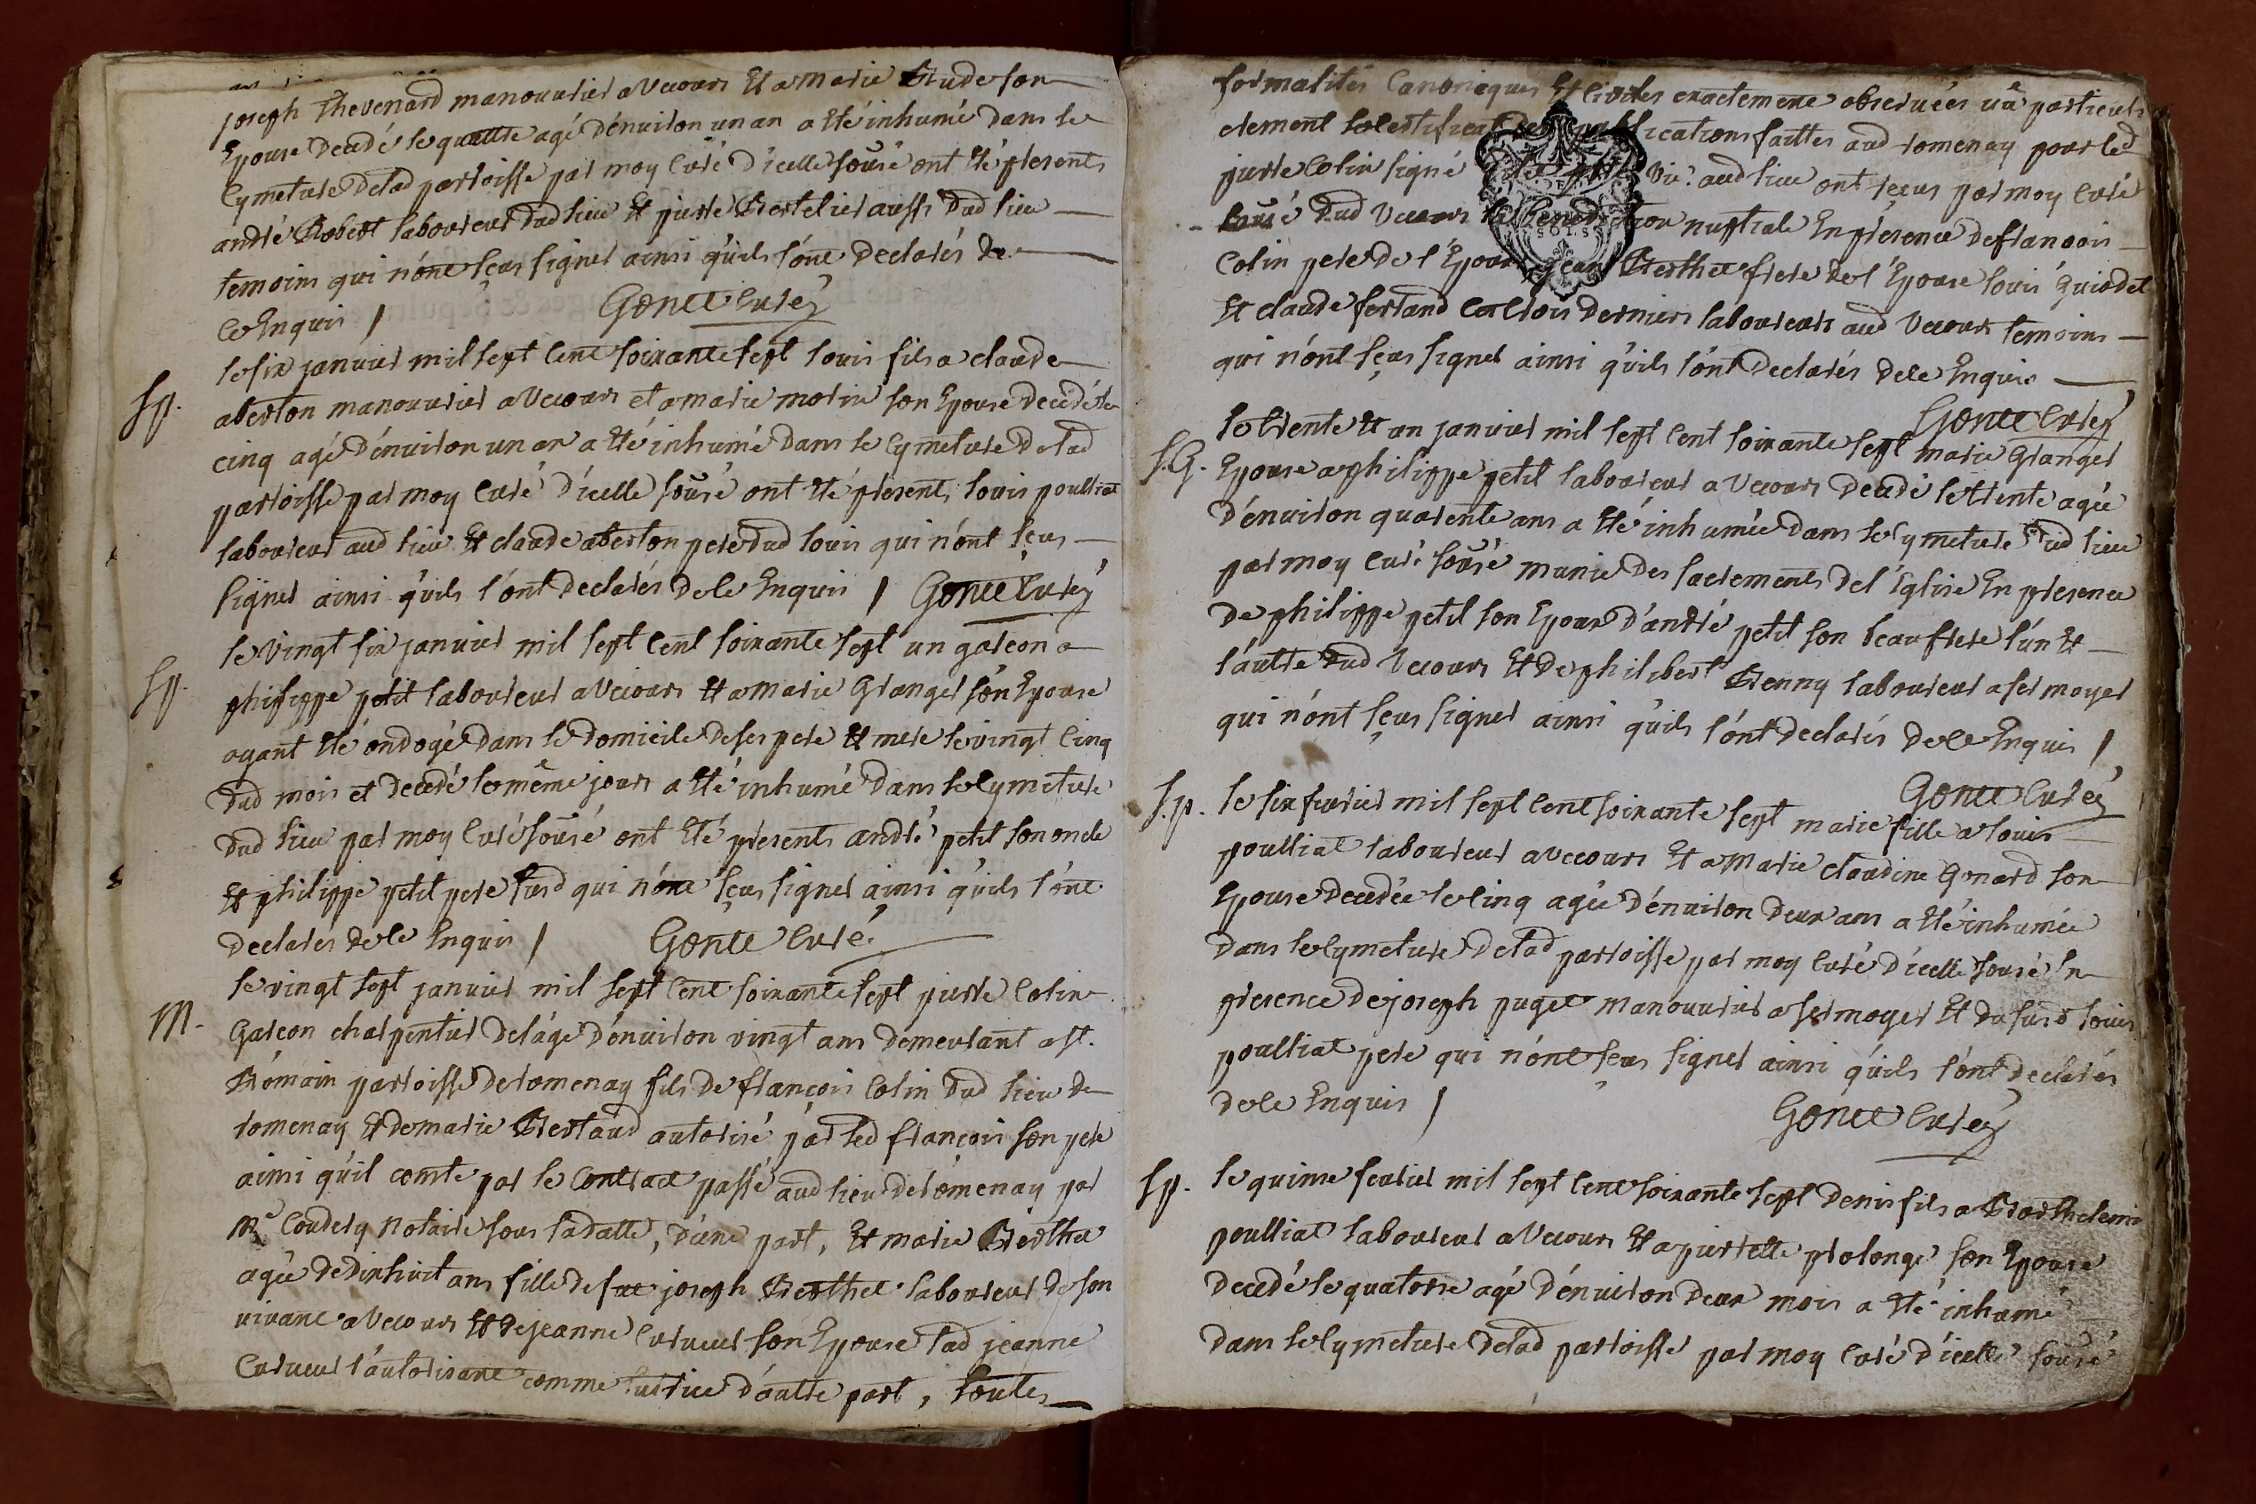 joseph thevenard manouurier a Vecours Et a Marie Bride son
Epouse decedé le quattre agé d'énuiron un an a Eté inhumé dans le
Cymetiere delad parroisse par moy Curé d'icelle sousé ont Eté presents
andré Robert laboureur dud lieu Et pierre Bertelier aussi dud lieu
temoins qui n'ont sçus signer ainsi quils l'ont declarés de
Ce Enquis / Gonet Curé
Sp. le six januier mil sept Cent soixante sept louis fils a claude
aberton manouurier a Vecours et a marie morin son Epouse decedé le
cinq agé d'énuiron un an a Eté inhumé dans le Cymetiere delad
parroisse par moy Curé d'icelle sousé ont Eté presents louis poulliat
laboureur aud lieu Et claude aberton pere dud louis qui n'ont sçus
signer ainsi quils l'ont declarés de Ce Enquis / Gonet Curé
Sp. le vingt six januier mil sept Cent soixante sept un garcon a
philippe petit laboureur a Vecours Et a marie Granger son Epouse
ayant Eté ondogé dans le domicile de ses pere Et mere le vingt Cinq
dud mois et decedé le même jour a Eté inhumé dans le Cymetiere
dud lieu par moy Curé sousé ont Eté presents andré petit son oncle
Et philippe petit pere susd qui n'ont sçus signer ainsi quils l'ont
declarés de Ce Enquis / Gonet Curé
M. le vingt sept januier mil sept Cent soixante sept pierre Colin
Garcon charpentier de l'âge d'énuiron vingt ans demeurant a St.
Romain parroisse de romenay fils de françois Colin dud lieu de
romenay Et de marie Bertaud autorisé par led françois son pere
ainsi qu'il comte par le Contract passé aud lieu de romenay par
Me Coudery Notaire sous sa datte, d'une part, Et marie Berthet
agée de dix huit ans fille de fut joseph Berthet laboureur de son
vivant a Vecours Et de jeanne Curueur son Epouse lad jeanne
Curueur l'autorisant comme tutrice d'autre part, toutes
formalités Canoniques Et Civiles exactement obseruées vû particuli
erement le Certificat des publications faittes aud romenay pour led
pierre Colin signé Vic. aud lieu ont reçus par moy Curé
sousé dud Vecours la benediction nuptiale En presence de françois
Colin pere de l'Epoux jean Berthet frere de l'Epouse louis Guiodet
Et claude ferrand Ces trois derniers laboureurs aud Vecours temoins
qui n'ont sçus signer ainsi quils l'ont declarés de Ce Enquis
Gonet Curé
S.G. le trente Et un januier mil sept Cent soixante sept marie Granger
Epouse a philippe petit laboureur a Vecours decedé le trente agée
d'énuiron quarente ans a Eté inhumée dans le Cymetiere dud lieu
par moy Curé sousé munie des sacrements de l'Eglise En presence
de philippe petit son Epoux d'andré petit son beaufrere l'un Et
l'autre dud Vecours Et de philibert Brenny laboureur a sermoyer
qui n'ont sçus signer ainsi quils l'ont declarés de Ce Enquis /
Gonet Curé
S.p. le six feurier mil sept Cent soixante sept marie fille a louis
poulliat laboureur a Vecours Et a Marie claudine Gonard son
Epouse decedée le Cinq agée d'énuiron deux ans a Eté inhumée
dans le Cymetiere delad parroisse par moy Curé d'icelle sousé En
presence de joseph puget manouurier a sermoyer Et du susd louis
poulliat pere qui n'ont sçus signer ainsi quils l'ont declarés
de Ce Enquis / Gonet Curé
Sp. le quinze feurier mil sept Cent soixante sept denis fils a Barthelemi
poulliat laboureur a Vecours Et a pierrette prolonge son Epouse
decedé le quatorze agé d'énuiron deux mois a Eté inhumé
dans le Cymetiere delad parroisse par moy Curé d'icelle sousé